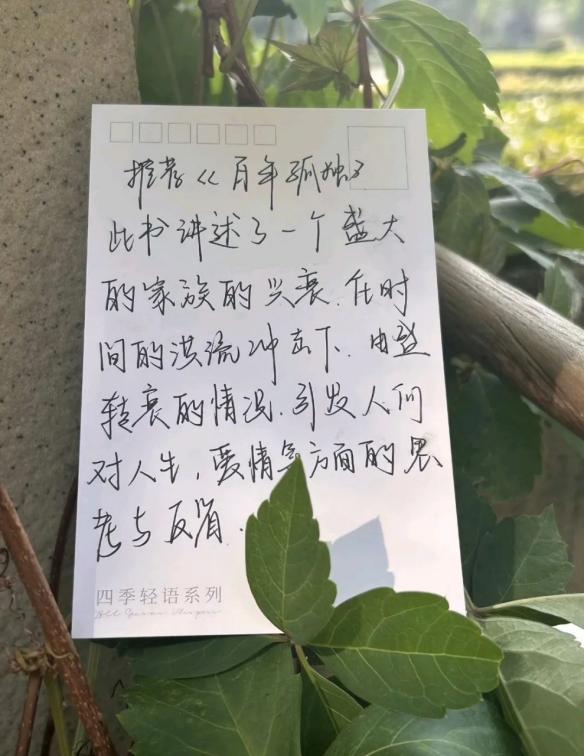 推荐《百年孤独》
此书讲述了一个盛大
的家族的兴衰.在时
间的洪流冲击下.由盛
转衰的情况.引发人们
对人生，爱情等方面的思
考与反省.
四季轻语系列